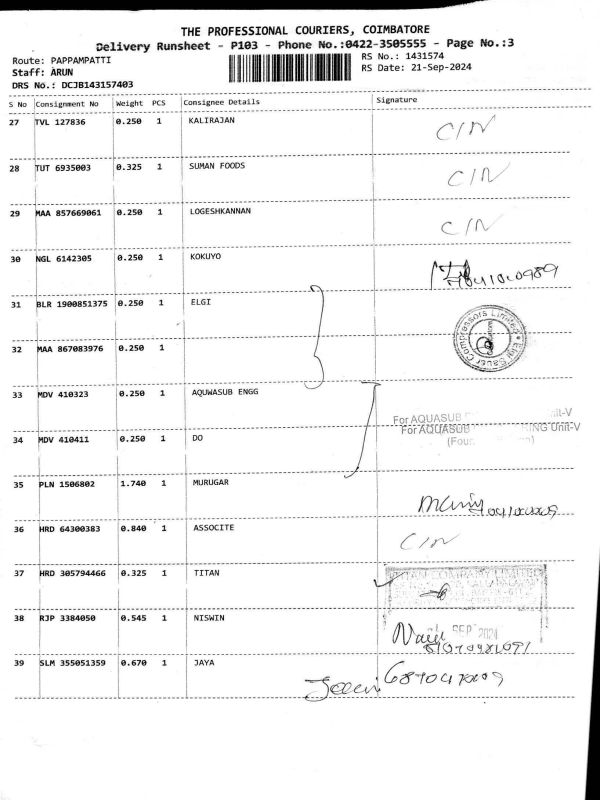 THE PROFESSIONAL COURIERS, COIMBATORE
Delivery Runsheet - P103 - Phone No.:0422-3505555 - Page No.:3
Route: PAPPAMPATTI
Staff: ARUN
DRS No.: DCJB143157403
RS No.: 1431574
RS Date: 21-Sep-2024
S No Consignment No Weight PCS Consignee Details Signature
27 TVL 127836 0.250 1 KALIRAJAN C/N
28 TUT 6935003 0.325 1 SUMAN FOODS C/N
29 MAA 857669061 0.250 1 LOGESHKANNAN C/N
30 NGL 6142305 0.250 1 KOKUYO
31 BLR 1900851375 0.250 1 ELGI
Elgi Sauer Compressors Limited
32 MAA 867083976 0.250 1
33 MDV 410323 0.250 1 AQUWASUB ENGG
For AQUASUB Unit-V
For AQUASUB RING Unit-V
34 MDV 410411 0.250 1 DO
35 PLN 1506802 1.740 1 MURUGAR
36 HRD 64300383 0.840 1 ASSOCITE C/N
37 HRD 305794466 0.325 1 TITAN
TITAN COMPANY LIMITED
38 RJP 3384050 0.545 1 NISWIN
SEP 2024
39 SLM 355051359 0.670 1 JAYA